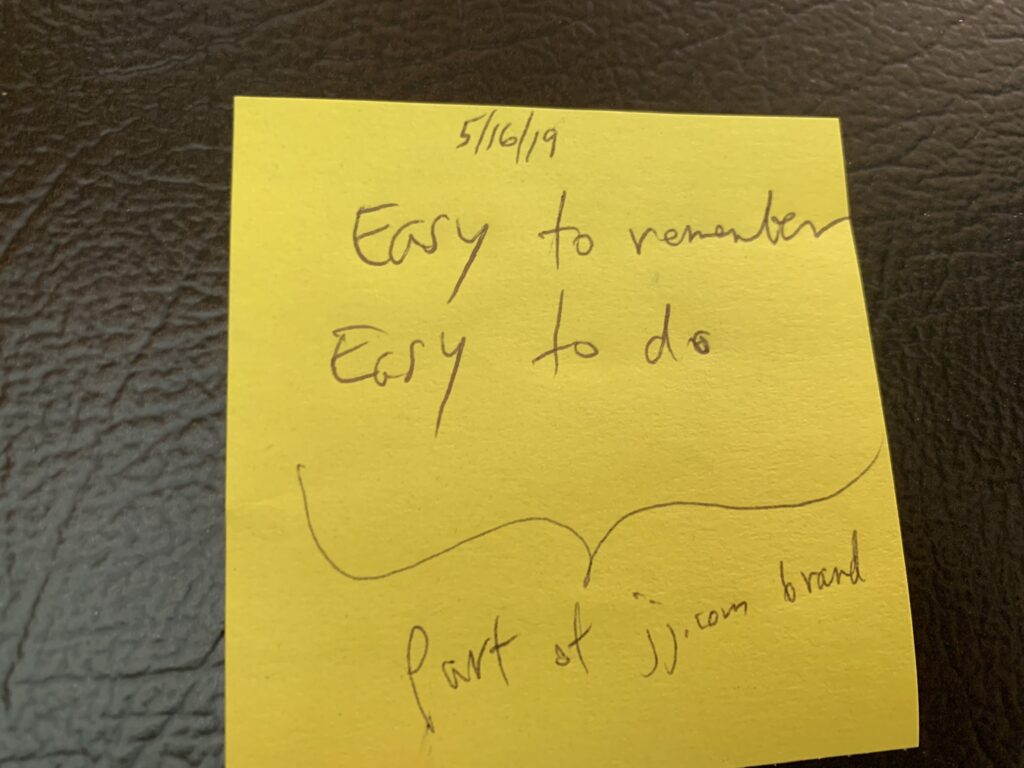 5/16/19
Easy to remember
Easy to do
Part of jj.com brand